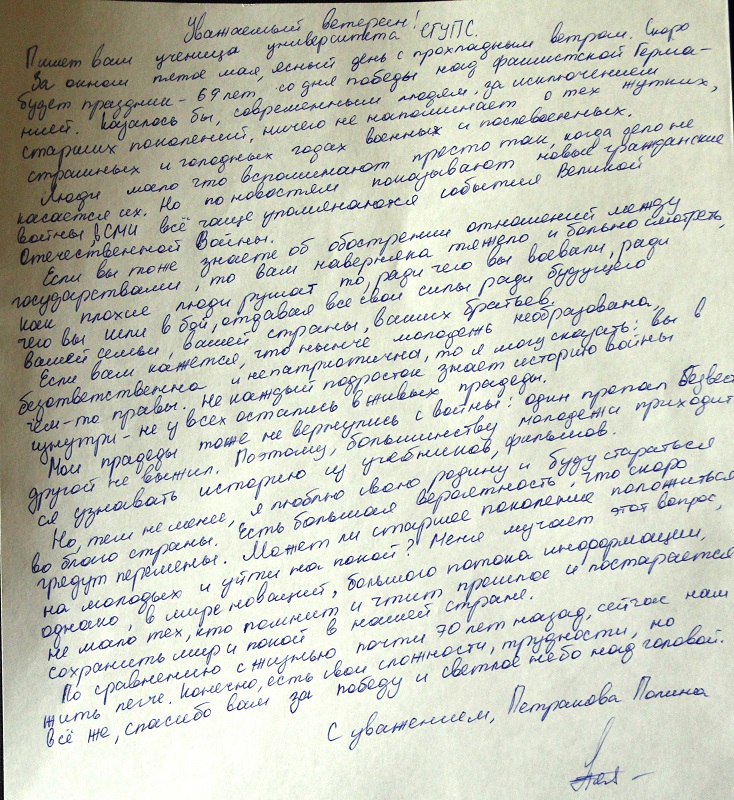 Уважаемый ветеран!
Пишет вам ученица университета СГУПС.
За окном пятое мая, ясный день с прохладным ветром. Скоро
будет праздник - 69 лет, со дня победы над фашистской Герма-
нией. Казалось бы, современным людям, за исключением
старших поколений, ничего не напоминает о тех жутких,
страшных и голодных годах военных и послевоенных.
Люди мало что вспоминают просто так, когда дело не
касается их. Но по новостям показывают новые гражданские
войны, в СМИ всё чаще упоминаются события Великой
Отечественной Войны.
Если вы тоже знаете об обострении отношений между
государствами, то вам наверняка тяжело и больно смотреть,
как плохие люди рушат то, ради чего вы воевали, ради
чего вы шли в бой, отдавая все свои силы ради будущего
вашей семьи, вашей страны, ваших братьев.
Если вам кажется, что нынче молодежь необразована,
безответственна и непатриотична, то я могу сказать: вы в
чём-то правы. Не каждый подросток знает историю войны
изнутри - не у всех остались в живых прадеды.
Мои прадеды тоже не вернулись с войны: один пропал безвест
другой не выжил. Поэтому, большинству молодежи приходит
ся узнавать историю из учебников, фильмов.
Но, тем не менее, я люблю свою родину и буду стараться
во благо страны. Есть большая вероятность, что скоро
грядут перемены. Может ли старшее поколение положиться
на молодых и уйти на покой? Меня мучает этот вопрос,
однако, в мире новаций, большого потока информации,
не мало тех, кто помнит и чтит прошлое и постарается
сохранить мир и покой в нашей стране.
По сравнению с жизнью почти 70 лет назад, сейчас нам
жить легче. Конечно, есть свои сложности, трудности, но
всё же, спасибо вам за победу и светлое небо над головой.
С уважением, Петракова Полина